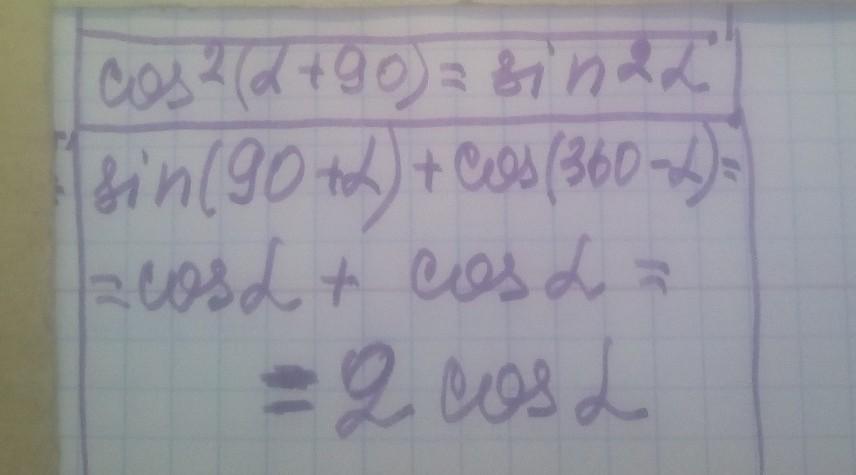 cos²(α+90) = sin2α
sin(90+α)+cos(360-α)=
=cosα + cosα =
= 2 cosα